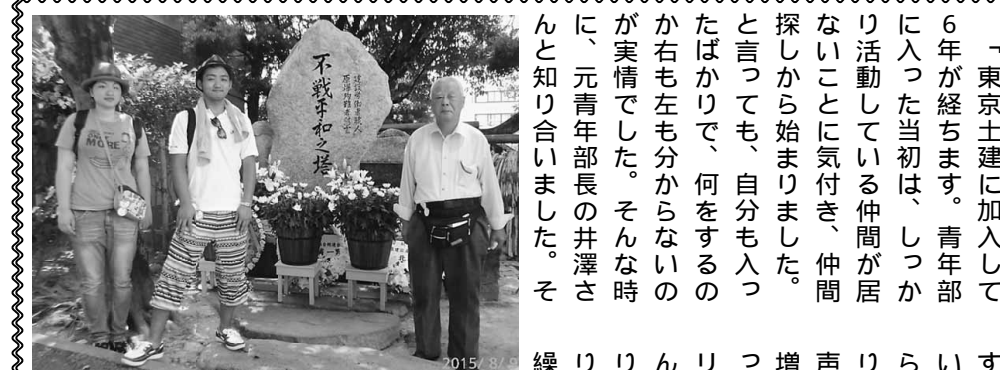 「東京土建に加入して
6年が経ちます。青年部
に入った当初は、しっか
り活動している仲間が居
ないことに気付き、仲間
探しから始まりました。
と言っても、自分も入っ
たばかりで、何をするの
か右も左も分からないの
が実情でした。そんな時
に、元青年部長の井澤さ
んと知り合いました。そ
す
い
ら
り
声
増
っ
り
ん
り
り
繰
不戦平和之塔
2015/ 8/ 9